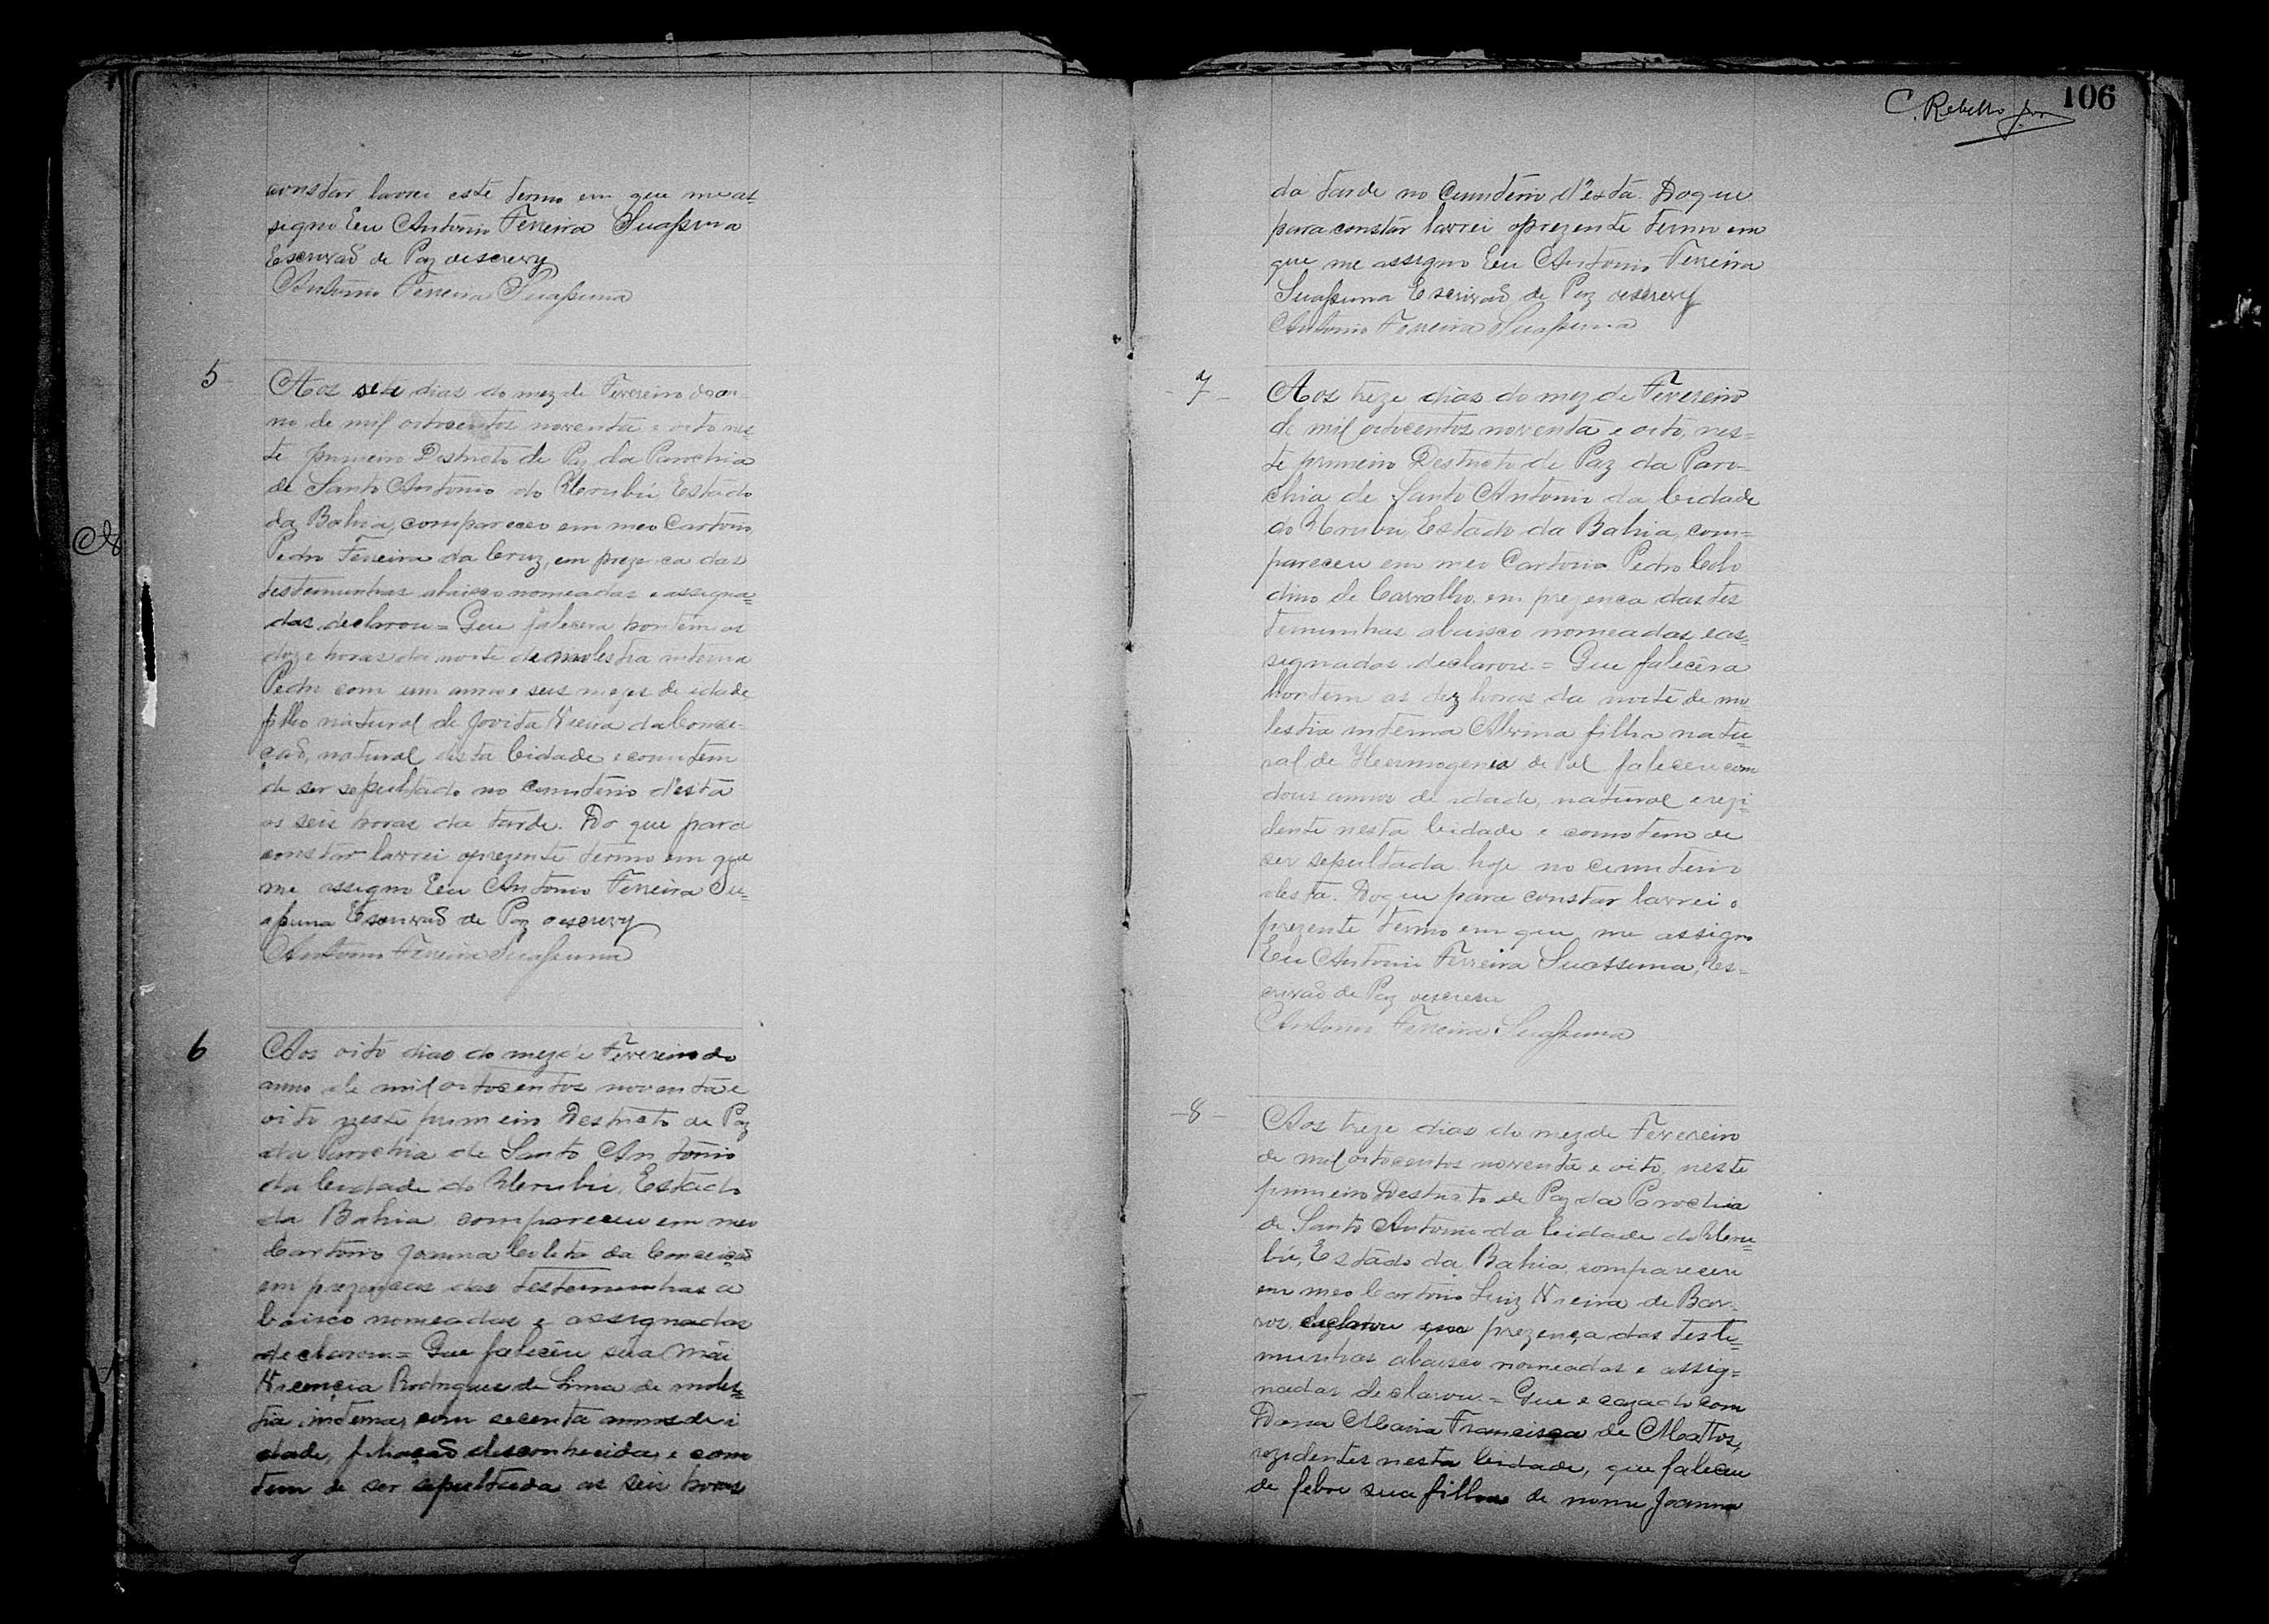 constar lavrei este termo em que me as-
signo Eu Antonio Ferreira Suassuna
Escrivaõ de Paz o escrevy
Antonio Ferreira Suassuna
5
Aos sete dias do mez de Fevereiro do an-
no de mil oitocentos noventa e oito nes-
te primeiro Destricto de Paz da Parochia
de Santo Antonio do Urubú Estado
da Bahia, compareceo em meo Cartorio
Pedro Ferreira da Cruz, em prezença das
testemunhas abaixo nomeadas e assigna=
das declarou = Que falecera hontem as
doze horas da noite de molestia interna
Pedro com um anno e seis mezes de idade
filho natural de Jovita Vieira da Concei-
çaõ, natural desta Cidade e como tem
de ser sepultado no Cemiterio d'esta
as seis horas da tarde. Do que para
constar lavrei o prezente termo em que
me assigno Eu Antonio Ferreira Su=
assuna Escrivaõ de Paz o escrevy
Antonio Ferreira Suassuna
6
Aos oito dias do mez de Fevereiro do
anno de mil oitocentos noventa e
oito neste primeiro Destricto de Paz
da Parochia de Santo Antonio
da Cidade do Urubú, Estado
da Bahia compareceu em meo
Cartorio Joanna Coleta da Conceiçaõ
em prezencas das testemunhas a
baixo nomeadas e assignadas
declarou = Que faleceu sua Mãi
Vicencia Rodrigues de Lima de moles=
tia interna, com secenta annos de i
dade, filiaçaõ desconhecida e com
tem de ser sepultada as seis horas
C. Rebello
106
da tarde no Cemiterio d'esta. Do que
para constar lavrei o prezente termo em
que me assigno Eu Antonio Ferreira
Suassuna Escrivaõ de Paz o escrevy
Antonio Ferreira Suassuna
-7-
Aos treze dias do mez de Fevereiro
de mil oitocentos noventa e oito, nes=
te primeiro Destricto de Paz da Paro-
chia de Santo Antonio da Cidade
do Urubu, Estado da Bahia, com=
pareceu em meo Cartorio Pedro
de Carvalho, em prezenca das tes
temunhas abaixo nomeadas e as=
signadas declarou = Que falecêra
hontem as dez horas da noite de mo
lestia interna filha natu=
ral de Hermogenia de faleceu com
dous annos de idade, natural e rezi=
dente nesta Cidade e como tem de
ser sepultada hoje no cemiterio
desta. Do que para constar lavrei o
prezente termo em que me assigno
Eu Antonio Ferreira Suassuna, Es=
crivaõ de Paz o escreve
Antonio Ferreira Suassuna
-8-
Aos treze dias do mez de Fevereiro
de mil oitocentos noventa e oito, neste
primeiro Destricto de Paz da Parochia
de Santo Antonio da Cidade do Uru=
bú, Estado da Bahia, compareceu
em meo Cartorio Luiz Vieira de Bar-
ros, prezença das teste=
munhas abaixo nomeadas e assig=
nadas declarou = Que e cazado com
Dona Maria Francisca de Mattos,
rezidentes nesta Cidade, que faleceu
de febre sua filha de nome Joanna